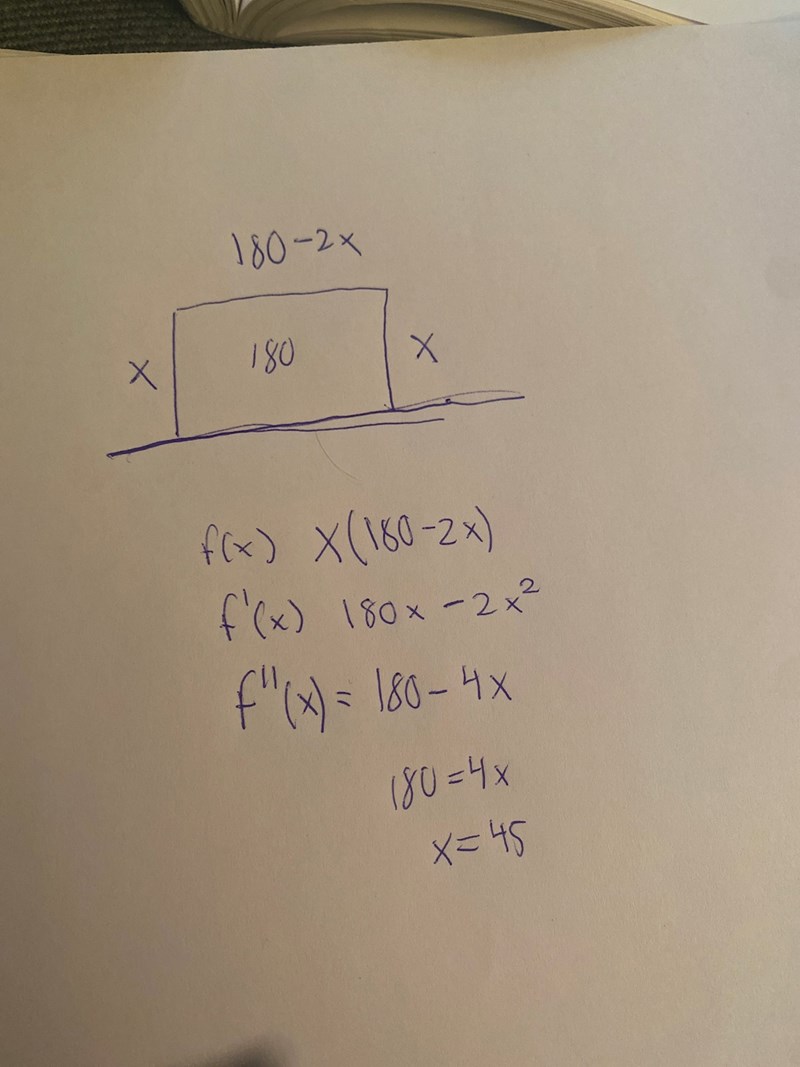 180-2x
x 180 x
f(x) x(180-2x)
f'(x) 180x-2x²
f''(x)= 180-4x
180=4x
x=45